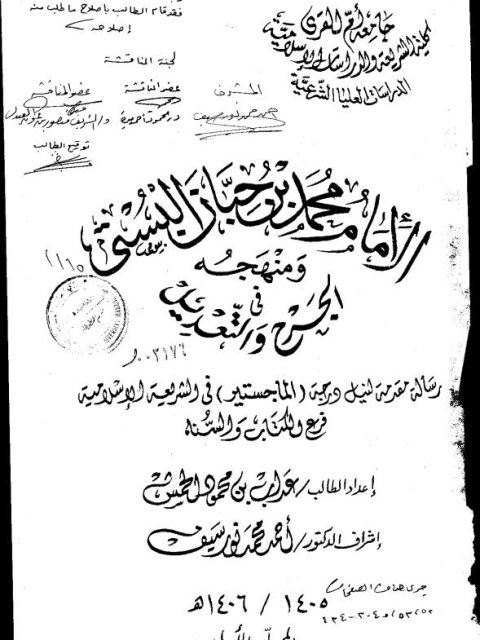 جامعة أم القرى
كلية الشريعة والدراسات الإسلامية
الدراسات العليا الشرعية
فقد قام الطالب بإصلاح ما طلب منه
إصلاحه
لجنة المناقشة
المشرف
عضو المناقشة
عضو المناقشة
أحمد محمد نور سيف
توقيع الطالب
الإمام محمد بن حبان البستي
ومنهجه
في
الجرح والتعديل
٠٠٣١٧٦
رسالة مقدمة لنيل درجة (الماجستير) في الشريعة الإسلامية
فرع الكتاب والسنة
إعداد الطالب/عداب بن محمود الحمش
إشراف الدكتور/أحمد محمد نور سيف
١٤٠٥ / ١٤٠٦هـ